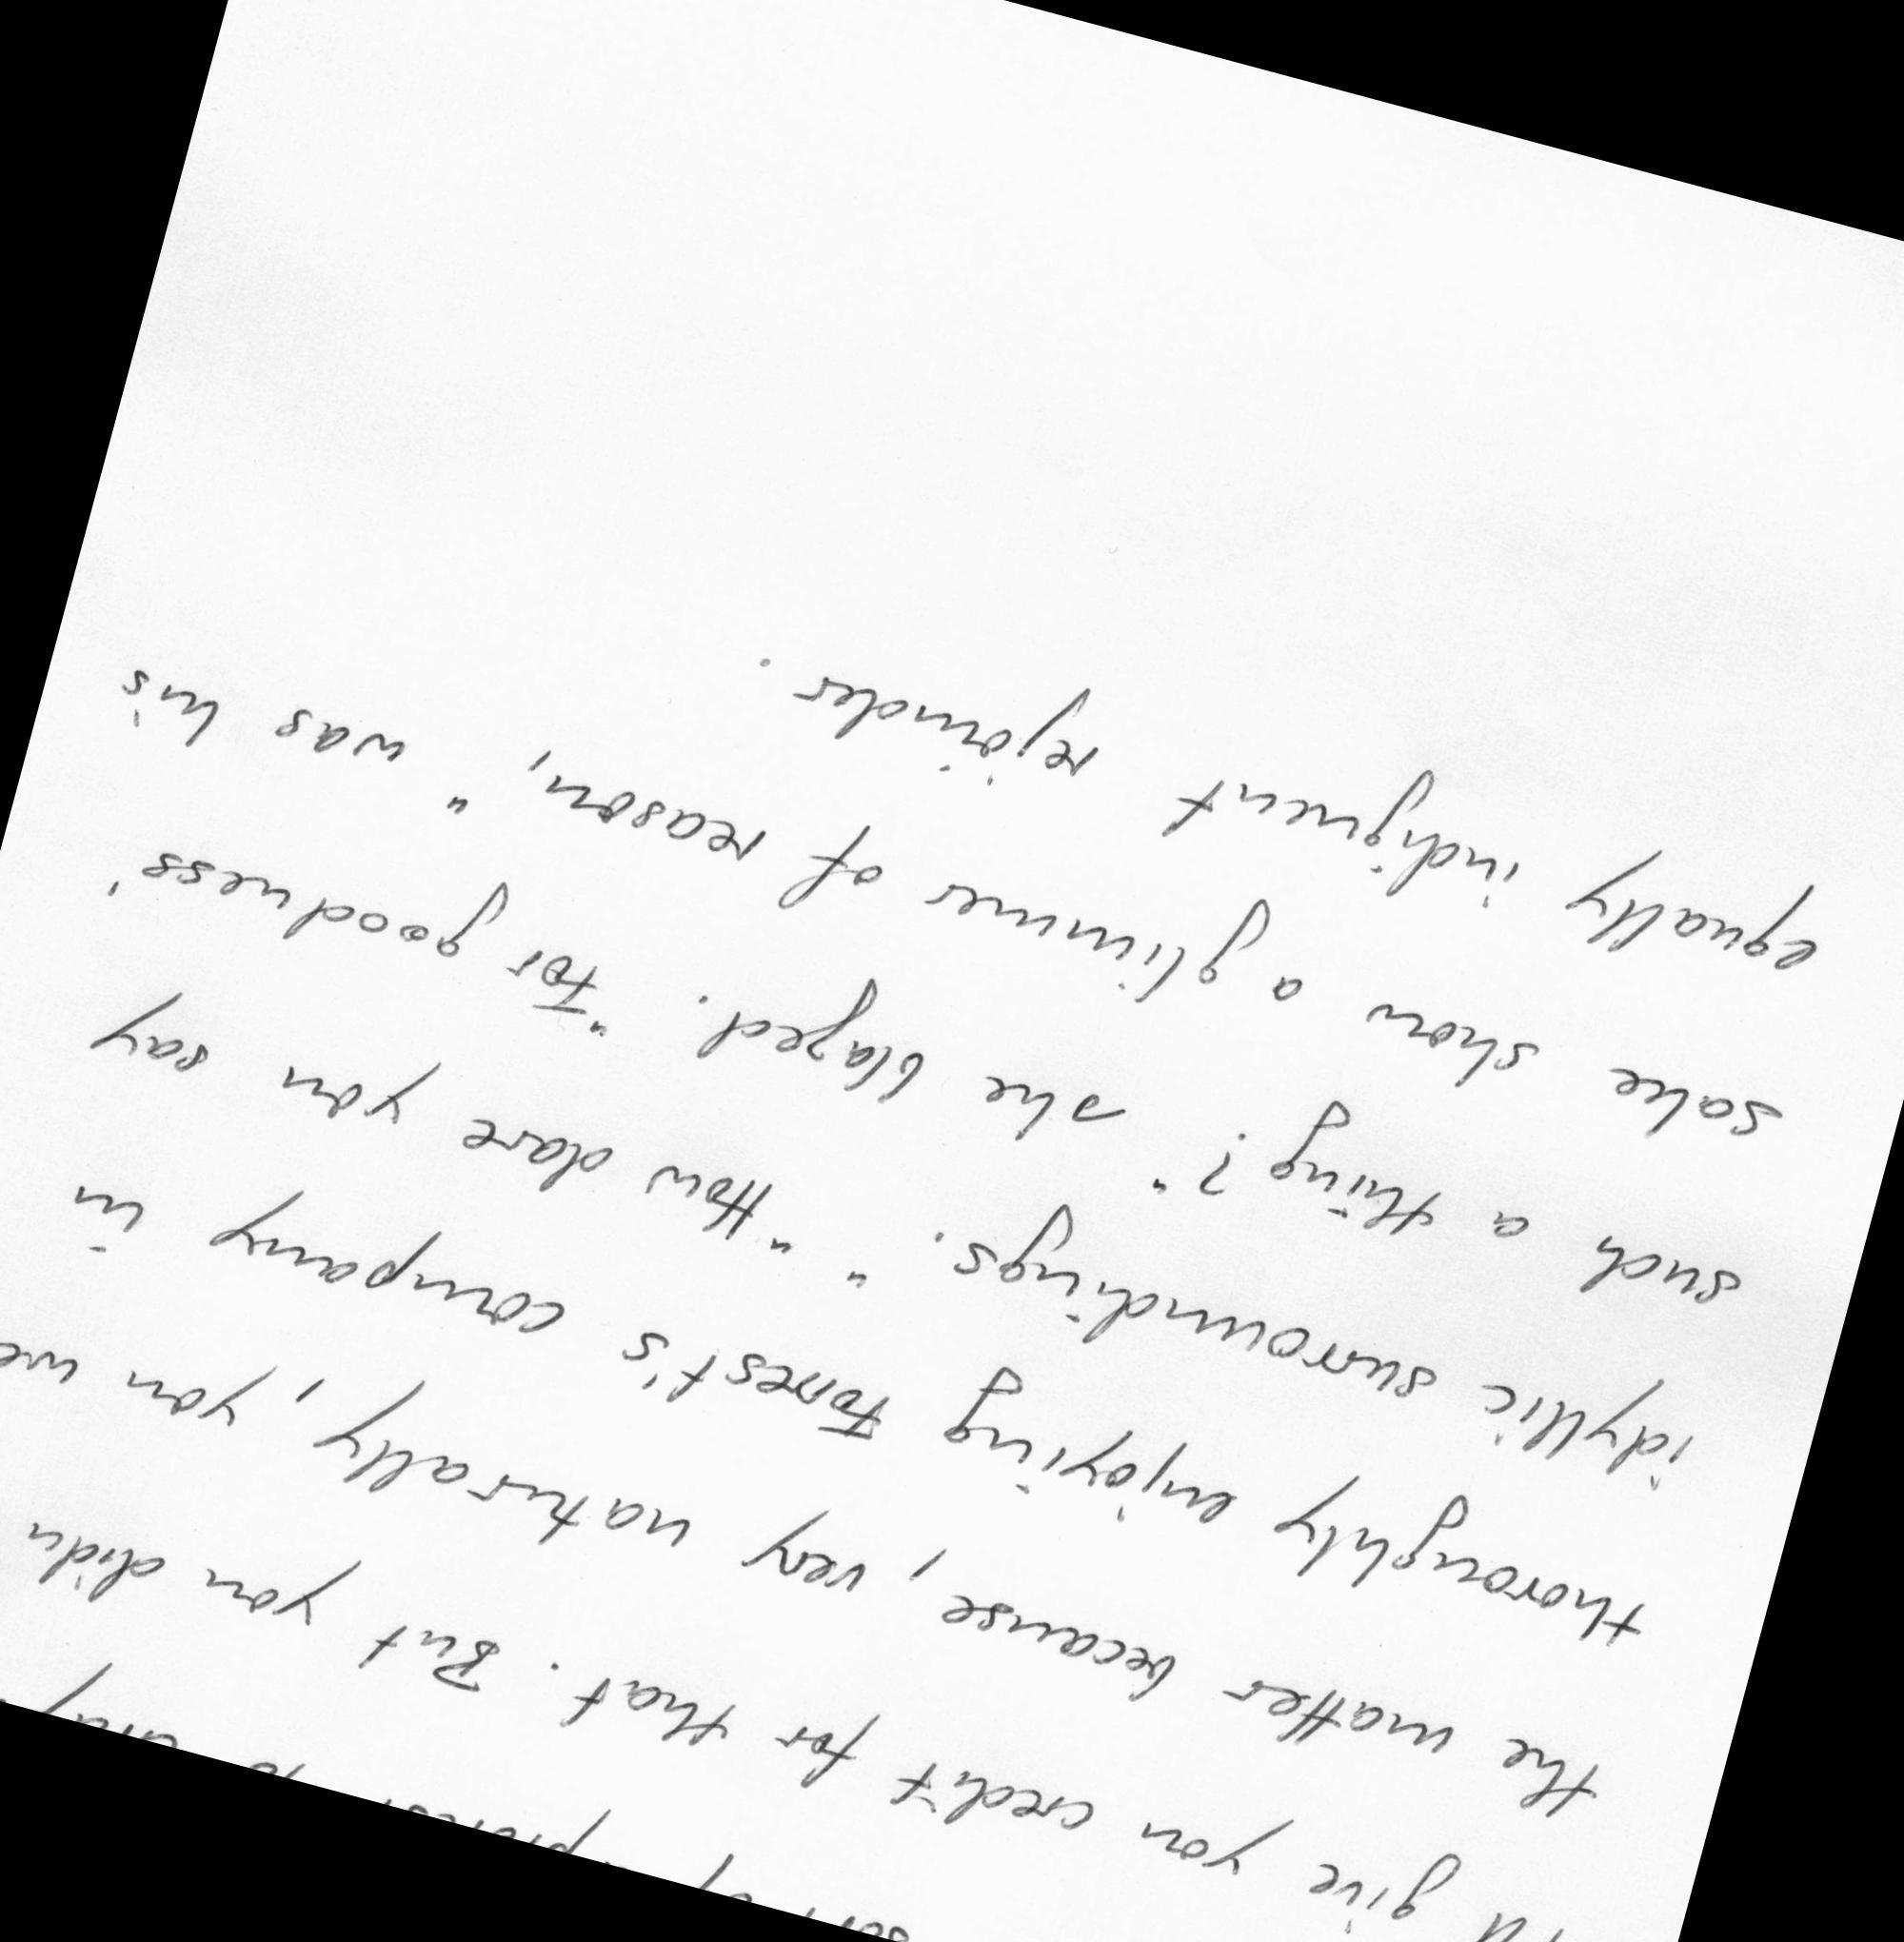 give you credit for that. But you didn
the matter because, very naturally, you we
thoroughly enjoying Forrest's company in
idyllic surroundings." "How dare you say
such a thing?" she blazed. "For goodness'
sake show a glimmer of reason," was his
equally indignent rejoinder.